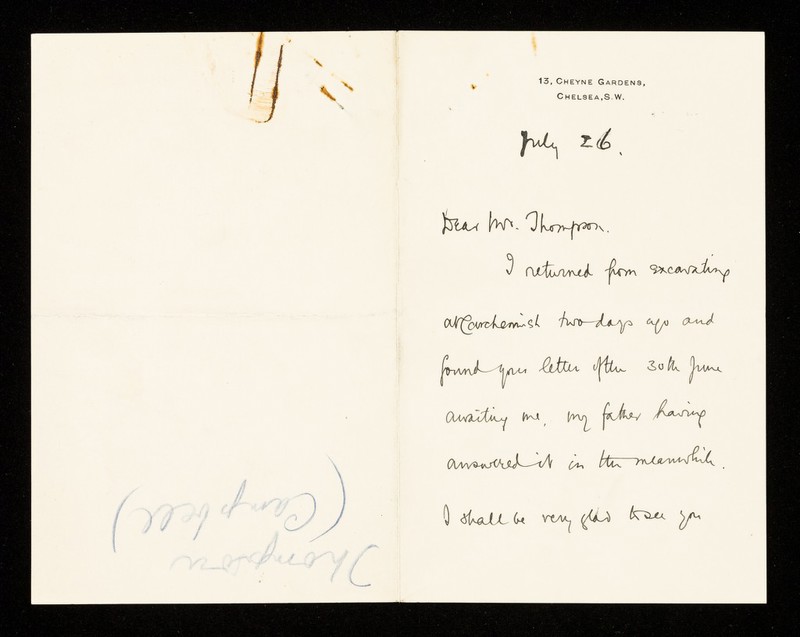 Thompson
(Campbell)
13, CHEYNE GARDENS,
CHELSEA, S.W.
July 26.
Dear Mr. Thompson.
I returned from excavating
at Carchemish two days ago and
found your letter of the 30th June
awaiting me, my father having
answered it in the meanwhile.
I shall be very glad to see you